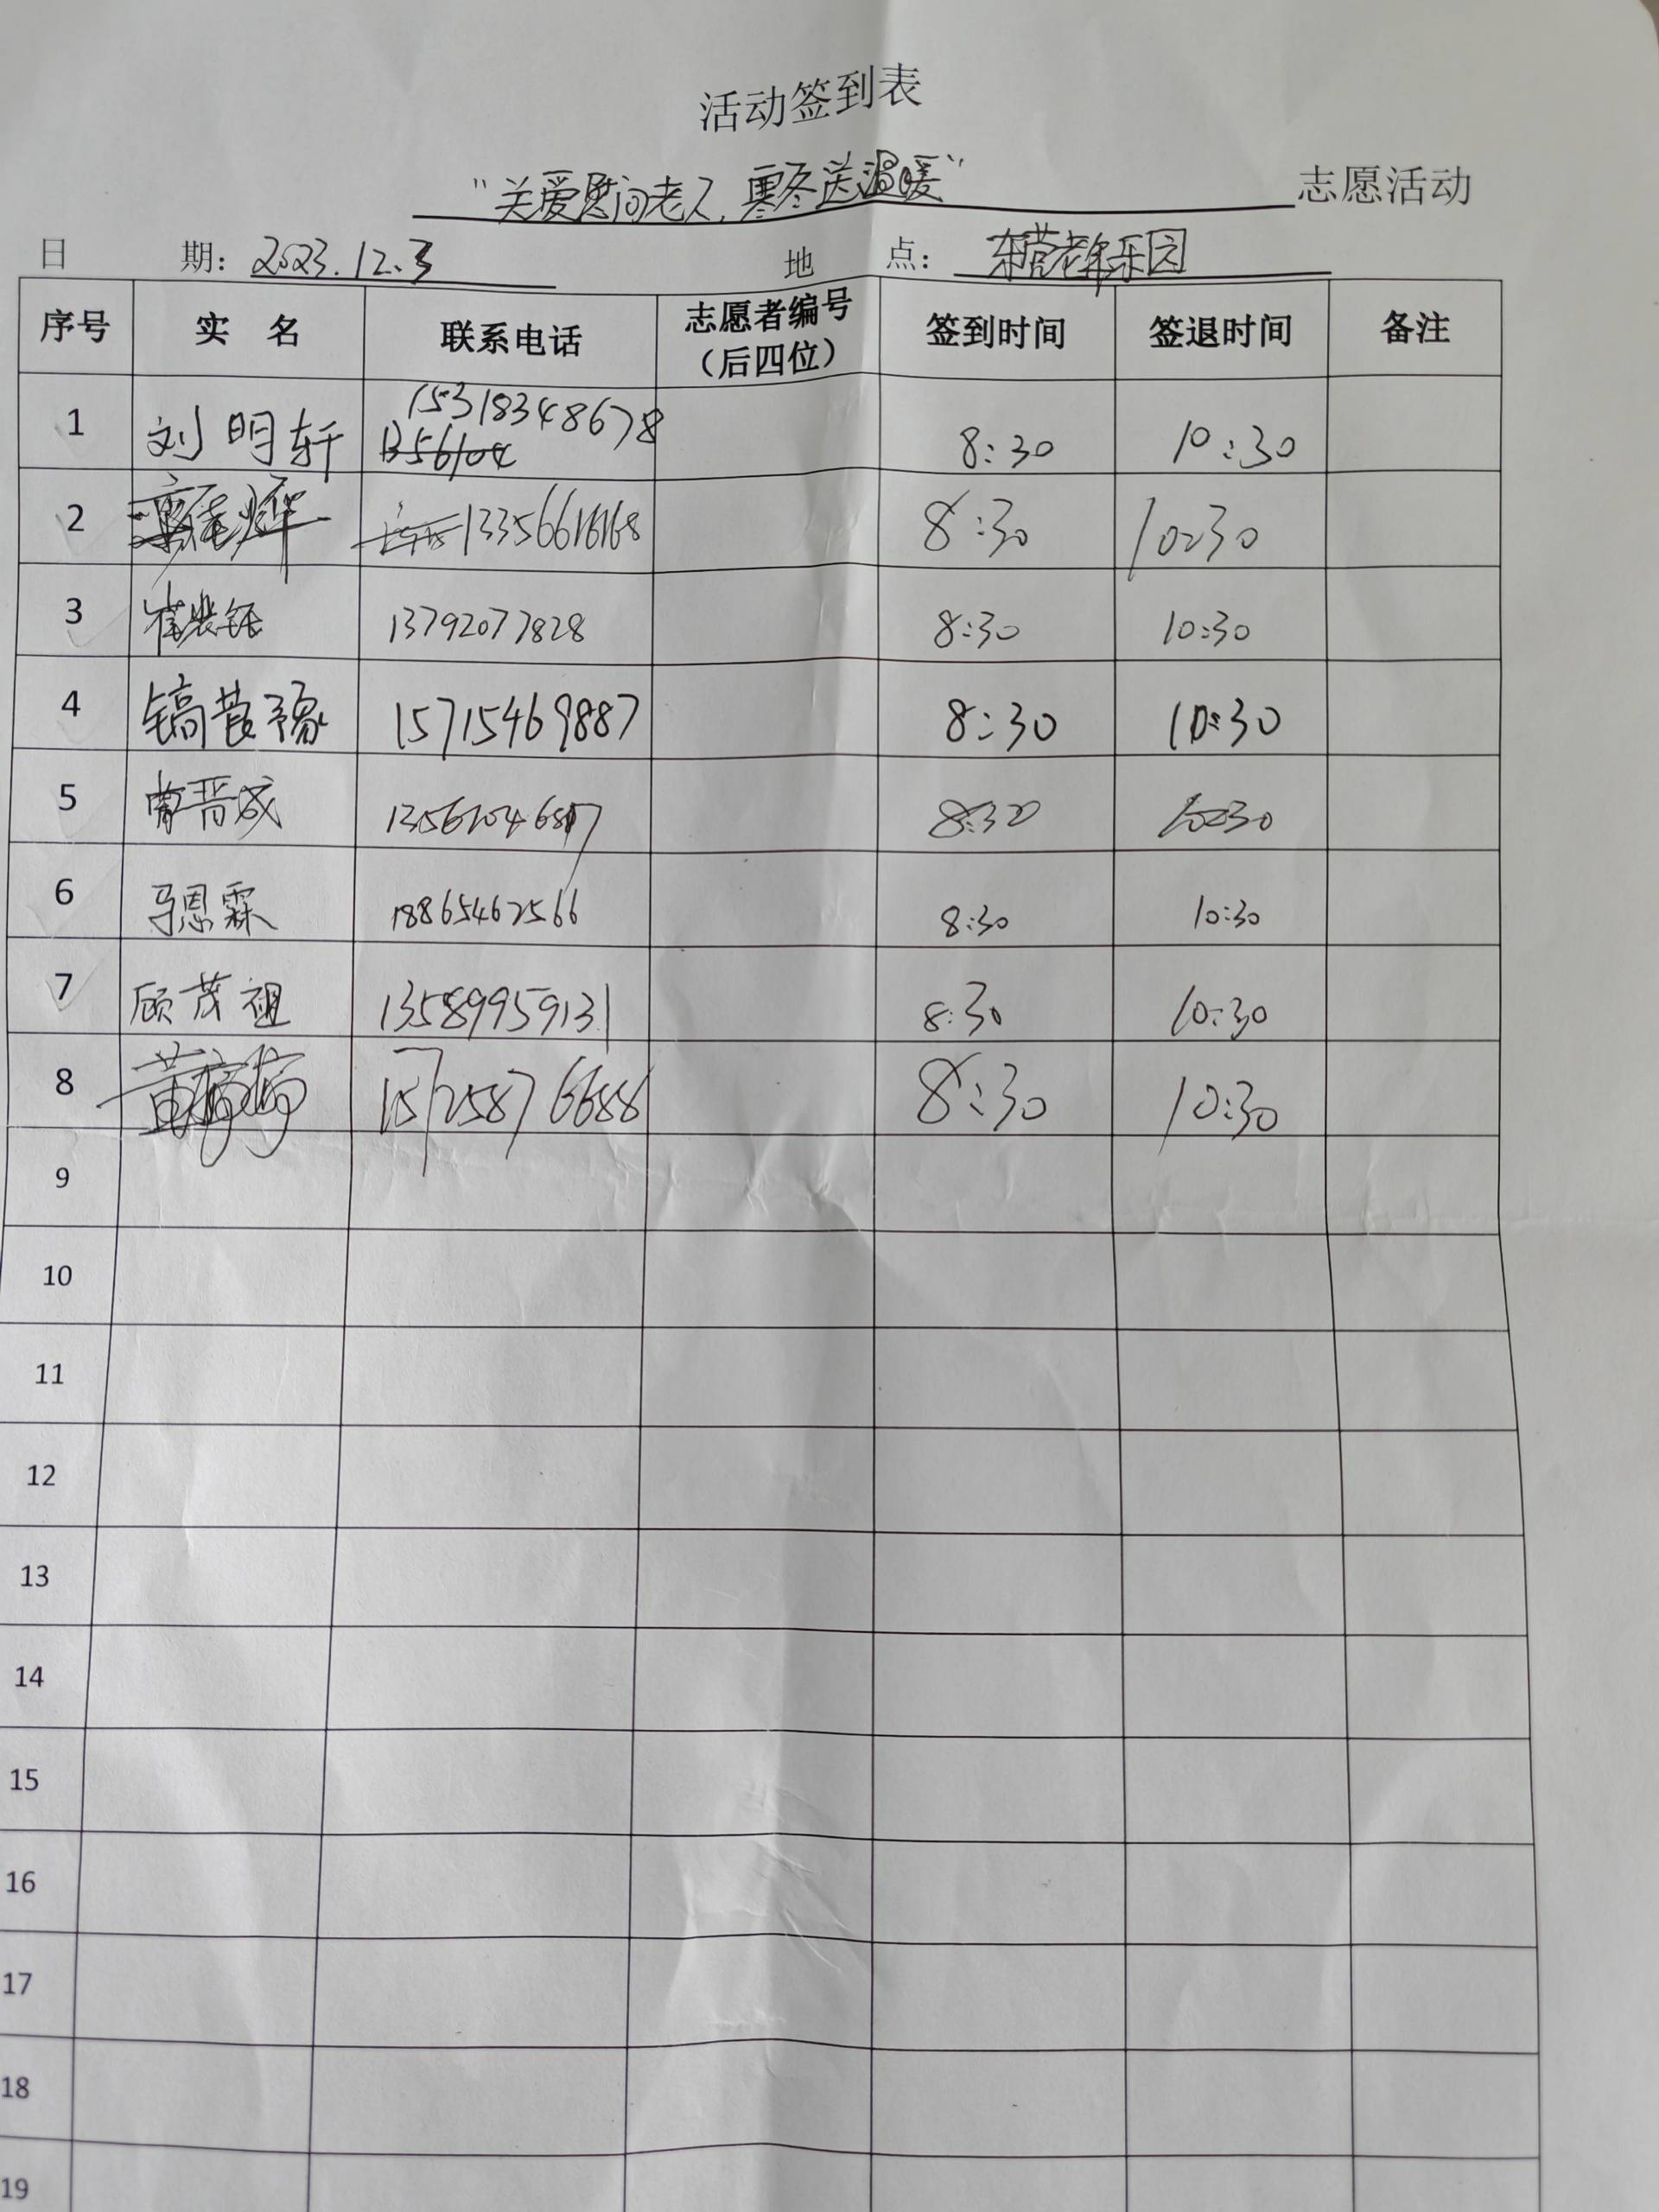 活动签到表
"关爱慰问老人,寒冬送温暖" 志愿活动
日 期: 2023.12.3 地 点: 东营老年乐园
序号 实 名 联系电话 志愿者编号(后四位) 签到时间 签退时间 备注
1 刘明轩 15318348678 8:30 10:30
2 13356616168 8:30 10:30
3 13792077828 8:30 10:30
4 15715469887 8:30 10:30
5 晋成 8:30 10:30
6 马恩霖 18865462566 8:30 10:30
7 顾茂祖 13589959131 8:30 10:30
8 黄 15725876688 8:30 10:30
9
10
11
12
13
14
15
16
17
18
19